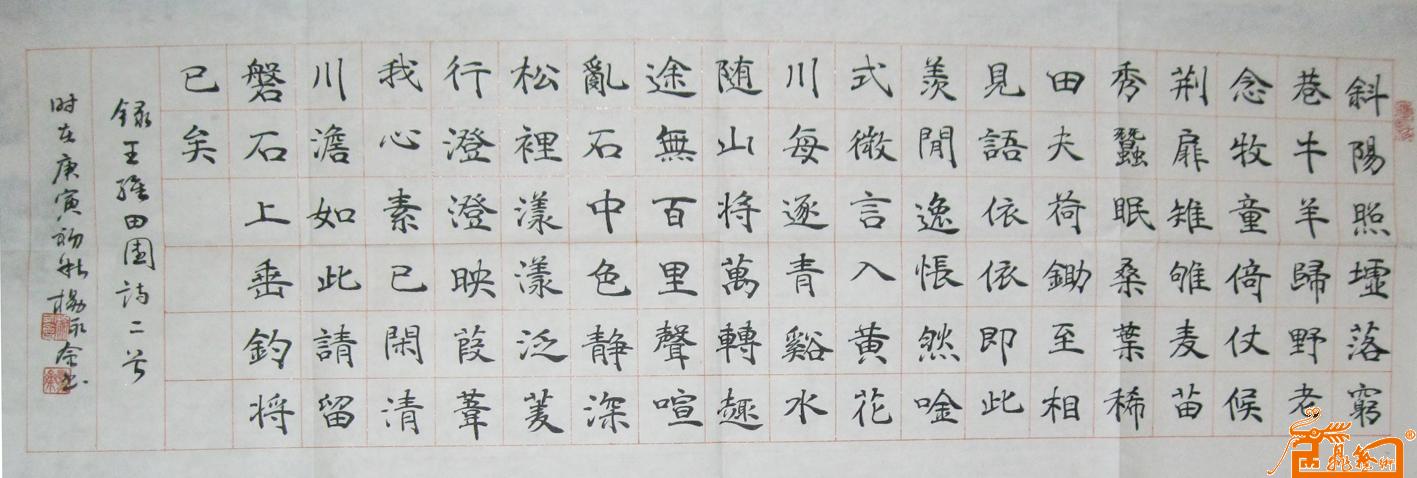 斜陽照墟落窮
巷牛羊歸野老
念牧童倚仗候
荆扉雉雊麦苗
秀蠶眠桑葉稀
田夫荷鋤至相
見語依依即此
羡閒逸悵然唫
式微言入黄花
川每逐青谿水
随山将萬轉趣
途無百里聲喧
亂石中色静深
松裡漾漾泛菱
行澄澄映葭葦
我心素已閑清
川澹如此請留
磐石上垂釣将
已矣
録王維田園詩二首
时在庚寅初秋楊